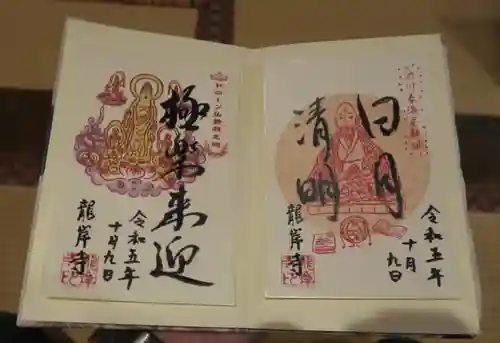 日月
清明
龍岸寺
令和五年
十月九日
ドローン仏
極楽来迎
龍岸寺
令和五年
十月九日